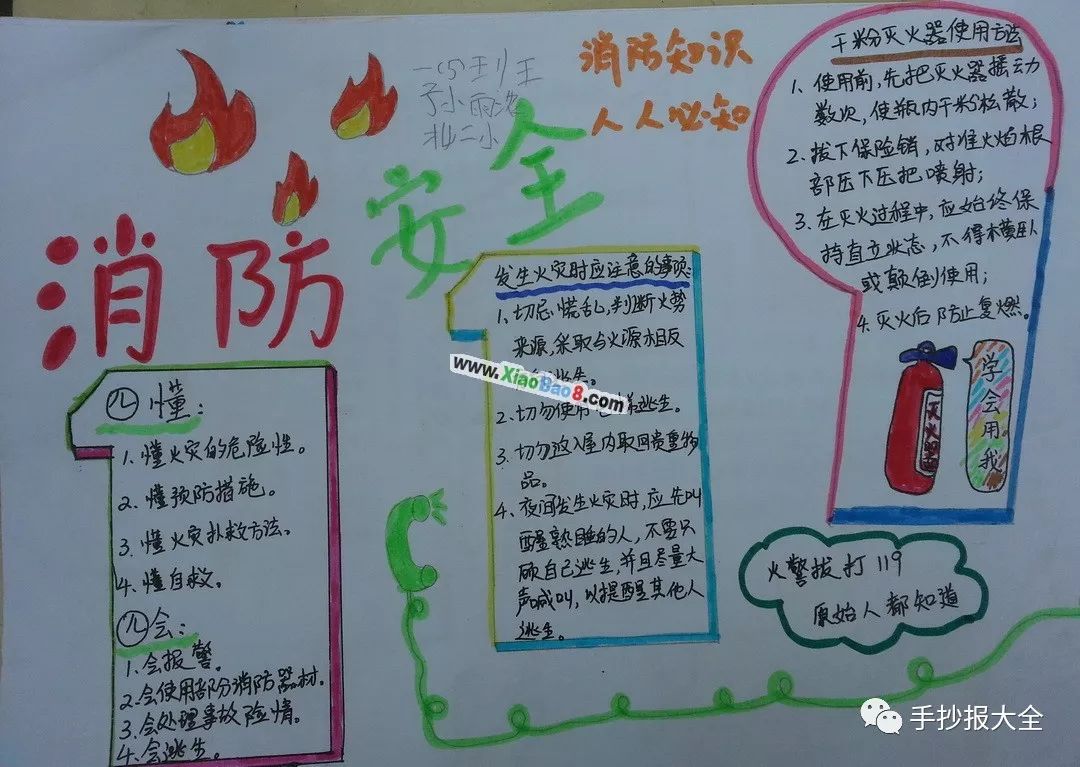 消防安全
消防知识
人人必知
四懂：
1. 懂火灾的危险性。
2. 懂预防措施。
3. 懂火灾扑救方法。
4. 懂自救。
四会：
1. 会报警。
2. 会使用部分消防器材。
3. 会处理事故险情。
4. 会逃生。
发生火灾时应注意的事项：
1、切忌慌乱，判断火势
来源，采取与火源相反
逃生。
2. 切勿使用 梯逃生。
3. 切勿返入屋内取回贵重物
品。
4、夜间发生火灾时，应先叫
醒熟睡的人，不要只
顾自己逃生，并且尽量大
声喊叫，以提醒其他人
逃生。
www.XiaoBao8.com
干粉灭火器使用方法
1、使用前，先把灭火器摇动
数次，使瓶内干粉松散；
2、拔下保险销，对准火焰根
部压下压把喷射；
3. 在灭火过程中，应始终保
持直立状态，不得横卧
或颠倒使用；
4. 灭火后防止复燃。
灭火器
学会用我
火警拔打119
原始人都知道
手抄报大全